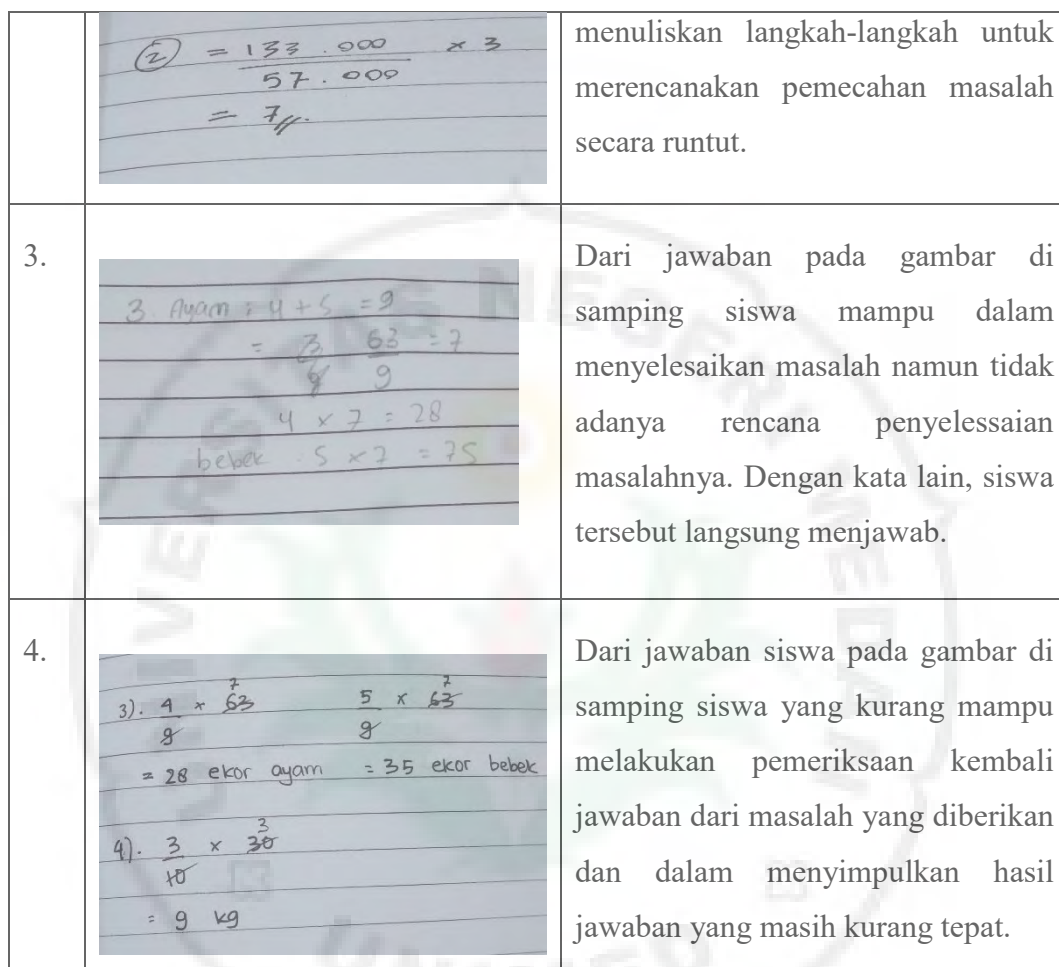 ② = 133.000 × 3
57.000
= 7
menuliskan langkah-langkah untuk
merencanakan pemecahan masalah
secara runtut.
3.
3. Ayam : 4 + 5 = 9
= 63 = 7
9
4 × 7 = 28
bebek 5 × 7 = 75
Dari jawaban pada gambar di
samping siswa mampu dalam
menyelesaikan masalah namun tidak
adanya rencana penyelessaian
masalahnya. Dengan kata lain, siswa
tersebut langsung menjawab.
4.
3). 4 × 63 7 5 × 63 7
9 9
= 28 ekor ayam = 35 ekor bebek
4). 3 × 30 3
10
= 9 kg
Dari jawaban siswa pada gambar di
samping siswa yang kurang mampu
melakukan pemeriksaan kembali
jawaban dari masalah yang diberikan
dan dalam menyimpulkan hasil
jawaban yang masih kurang tepat.